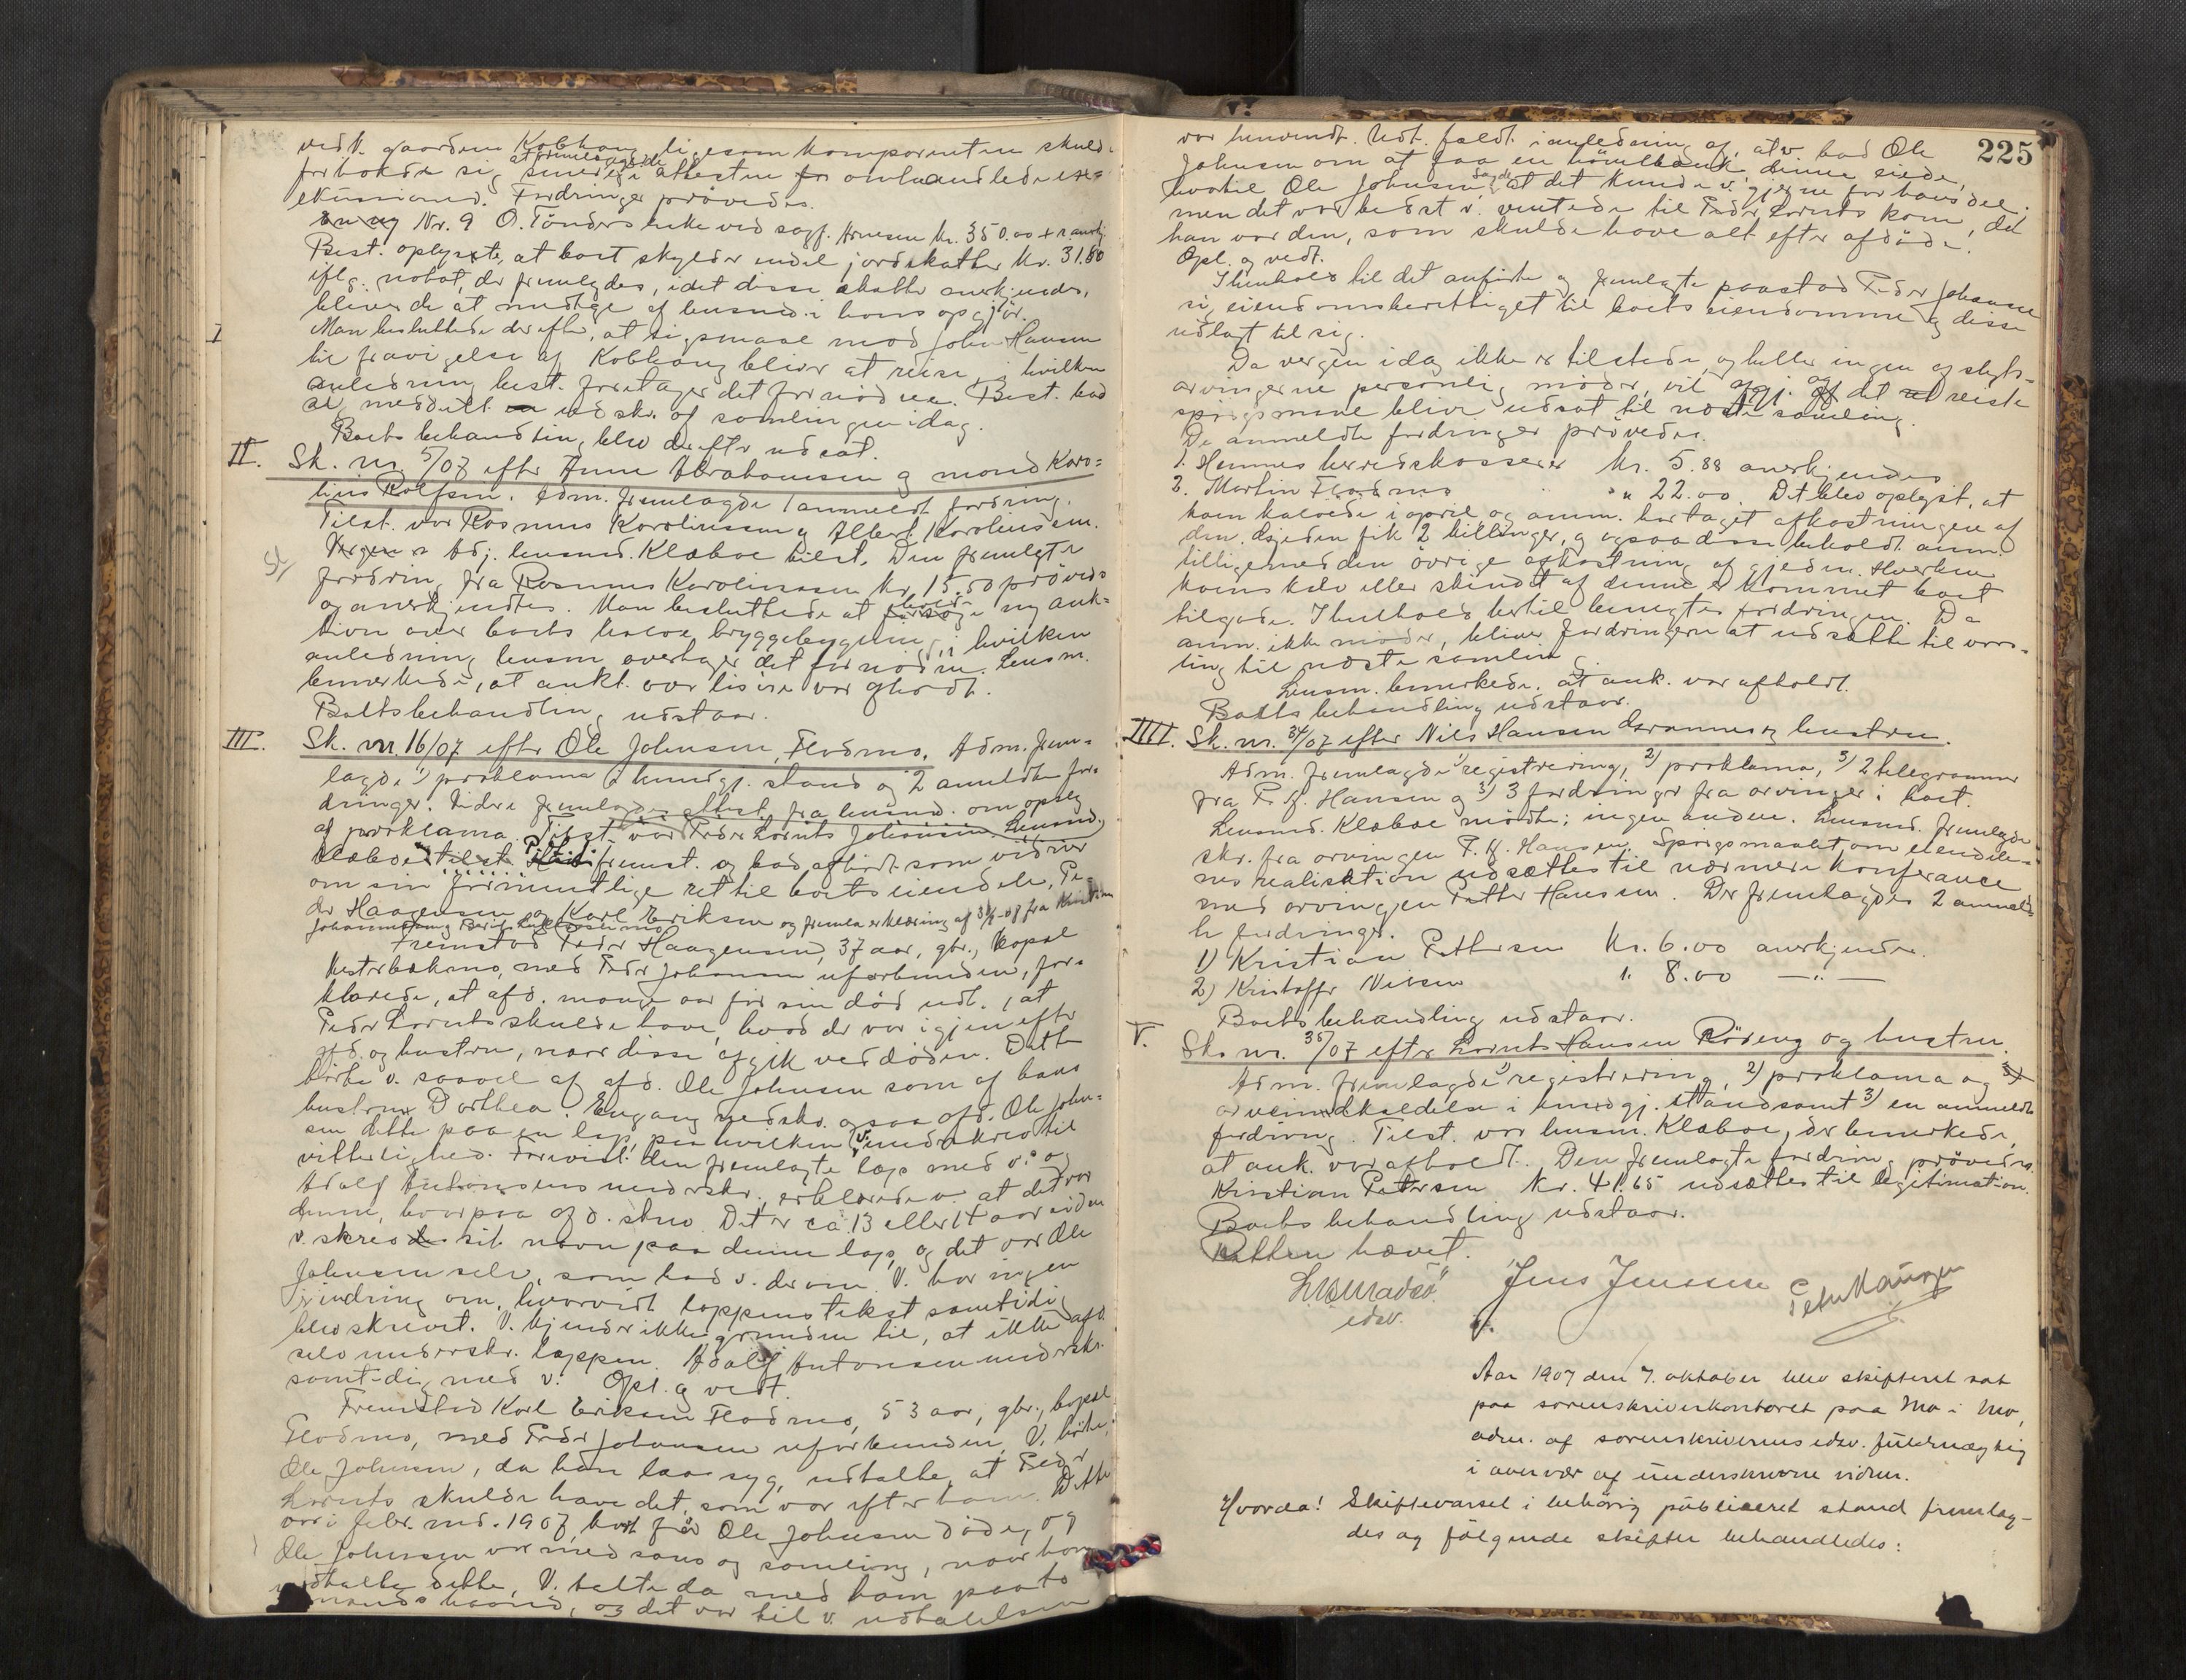 ved v. gaarden Kobhaug ligesom komparenten skulde
forbeholde sig
at fremlægge attesten omhandlede
ekussioner. Fordringer prøvedes.
Nr. 9 O. Tönders enke ved sagf. Arnesen kr. 350.00 + r
Best. oplyste, at boet skylder endel jordskatter kr. 31.80
iflg. notat, der fremlagdes, idet disse skatter anerkjendes,
bliver de at medtage af lensmd. i hans opgjør.
I
Man besluttede derefter, at sigsmaal mod John Hansen
til fravigelse af Kobhaug bliver at reise, i hvilken
anledning best. foretager det fornødne. Best. bad
sig meddelt udskr. af samlingen idag.
Boets behandling blev derefter udsat.
II. Sk. nr. 5/07 efter Anne Abrahamsen og mand Karo-
linus Rolfsen. Adm. fremlagde 1 anmeldt fordring.
Tilst. var Rasmus Karolinussen og Albert Karolinussen.
Adj. lensmd. Klæboe tilst. Den fremlagte
fordring fra Rasmus Karolinussen kr. 15.50 prøvedes
og anerkjendtes. Man besluttede at afholde ny auk-
tion over boets halve bryggebygning, i hvilken
anledning lensm. overtager det fornødne. Lensm.
bemerkede, at aukt. over løsøre var afholdt.
Boets behandling udstaar.
III. Sk. nr. 16/07 efter Ole Johnsen, Flodmo. Adm. frem-
lagde 1) proklama i kundgj. stand og 2 anmeldte for-
dringer. Videre fremlagdes attest fra lensmd. om opslg
af proklama. Tilst. var Peder Lornts Johansen. Lensmd.
Klæboe tilst. fremst. og bad afhørt som vidner
om sin formentlige ret til boets eiendele, Pe-
der Haagensen og Karl Eriksen og fremla erklæring af fra Kristian
Johannesen og Berit
Fremstod Peder Haagensen, 37 aar, gbr., bopæl
Vesterbækmo, med Peder Johansen uforbunden, for-
klarede, at afd. mange aar før sin død udt., at
Peder Lornts skulde have, hvad der var igjen efter
afd. og hustru, naar disse afgik ved døden. Dette
hørte v. saavel af afd. Ole Johnsen som af hans
hustru Dorthea. Engang nedskr. ogsaa afd. Ole John-
sen dette paa en lap, paa hvilken v. underskrev til
vitterlighed. Forevist den fremlagte lap med v.s og
Adolf Antonsens underskr. erklærede v. at det var
denne, hvorpaa afd. skrev. Det er ca 13 eller 14 aar siden
v. skrev sit navn paa denne lap, og det var Ole
Johnsen selv, som bad v. derom. V. har ingen
erindring om, hvorvidt lappens tekst samtidig
blev skrevet. V. kjender ikke grunden til, at ikke afd.
selv underskr. lappen. Adolf Antonsen underskr.
samtidig med v. Opl. og vedt.
Fremstod Karl Eriksen Flodmo, 53 aar, gbr., bopæl
Flodmo, med Peder Johansen uforbunden. V. hørte,
Ole Johnsen, da han laa syg, udtalte, at Peder
Lornts skulde have det, som var efter ham. Dette
var i febr. md. 1907, kort før Ole Johnsen døde, og
Ole Johnsen var med sans og samling, naar han
udtalte dette. V. talte da med ham paa to
mands haand, og det var til v. udtalelsen
225
var henvendt. Udt. faldt i anledning af, at v. bad Ole
Johnsen om at faa en høvelbænk, denne eiede,
hvortil Ole Johnsen sagde, at det kunde v. gjerne for hans del,
men det var bedst v. ventede til Peder Lornts kom, da
han var den, som skulde have alt efter afdøde.
Opl. og vedt.
I henhold til det anførte og fremlagte paastod Peder Johansen
sig eiendomsberettiget til boets eiendomme og disse
udlagt til sig.
Da vergen idag ikke er tilstede, og heller ingen af slegts-
arvingerne personlig møder, vil afgj. af det reiste
spørgsmaal blive udsat til næste samling.
De anmeldte fordringer prøvedes.
1. Hemnes herredskasserer kr. 5.88 anerkjendes
2. Martin Flodmo " 22.00. Det blev oplyst, at
koen kalvede i april og anm. har taget afkastningen af
den. Gjeden fik 2 killinger, og ogsaa disse beholdt anm.
tilligemed den øvrige afkastning af gjeden. Hverken
koens kalv eller skindet af denne er kommet boet
tilgode. I henhold hertil benegtes fordringen. Da
anm. ikke møder, bliver fordringen at udsætte til vars-
ling til næste samling.
Lensm. bemerkede, at auk. var afholdt.
Boets behandling udstaar.
IIII. Sk. nr. 34/07 efter Nils Hansen og hustru.
Adm. fremlagde 1) registrering, 2) proklama, 3) 2 telegrammer
fra P. H. Hansen og 3) 3 fordringer fra arvinger i boet.
Lensmd. Klæboe mødte; ingen anden. Lensmd. fremlagde
skr. fra arvingen P. H. Hansen. Spørgsmaalet om eiendele-
nes realisation udsættes til nærmere konferance
med arvingen Petter Hansen. Der fremlagdes 2 anmeld-
te fordringer.
1) Kristian Pettersen Kr. 6.00 anerkjendes.
2) Kristoffer Nilsen " 8.00 — " —
Boets behandling udstaar.
V. Sk. nr. 35/07 efter Lornts Hansen Røseng og hustru.
Adm. fremlagde 1) registrering, 2) proklama og
arveindkaldelse i kundgj. stand samt 3) en anmeldt
fordring. Tilst. var lensm. Klæboe, der bemerkede,
at auk. var afholdt. Den fremlagte fordring prøvedes.
Kristian Petersen Kr. 41.65 udsættes til legitimation.
Boets behandling udstaar.
Retten hævet.
Jens Jenssen
edsv.
Aar 1907 den 7. oktober blev skifteret sat
paa sorenskriverkontoret paa Mo i Mo,
adm. af sorenskriverens edsv. fuldmægtig
i overvær af underskrevne vidner.
Hvorda! Skiftevarsel i behørig publiceret stand fremlag-
des og følgende skifter behandledes: